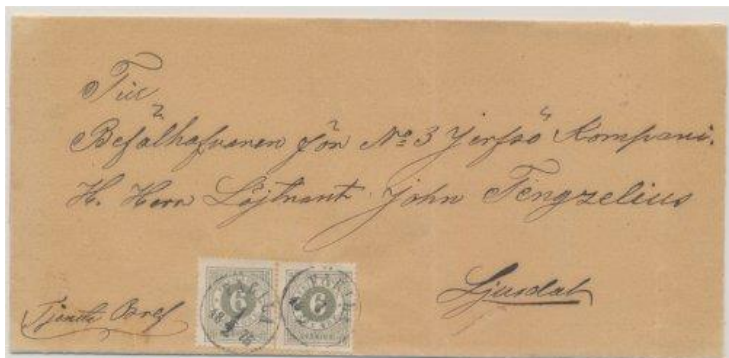 Till
Befälhafvaren för No 3 Jerfsö Kompani.
H. Herr Löjtnant John Tengzelius
Ljusdal
Tjenste Bref
6 6